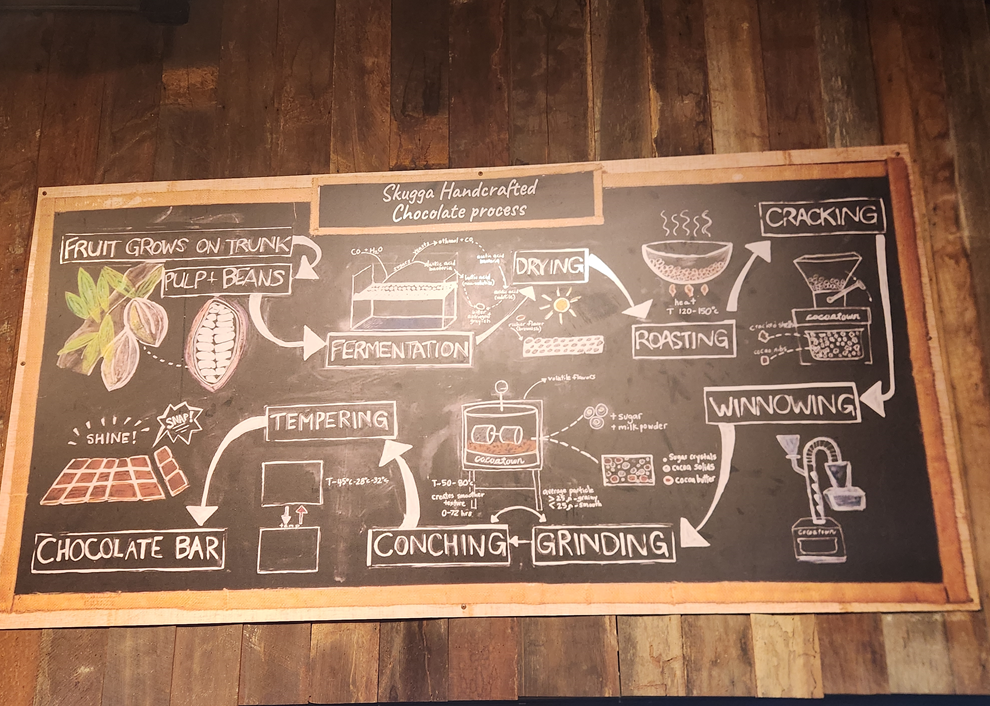 Skugga Handcrafted
Chocolate process
FRUIT GROWS ON TRUNK
PULP + BEANS
FERMENTATION
CO₂ + H₂O
ethanol + CO₂
bacteria
DRYING
ROASTING
heat
T 120-150°c
CRACKING
cocoatown
cracked shells
cocoa nibs
WINNOWING
cocoatown
GRINDING
+ sugar
+ milk powder
sugar crystals
cocoa solids
cocoa butter
average particle
> 25 µ - grainy
< 25 µ - smooth
volatile flavors
cocoatown
CONCHING
T-50-80°c
creates smoother
texture
0-72 hrs
TEMPERING
T-45°c-28°c-32°c
CHOCOLATE BAR
SHINE!
SNAP!